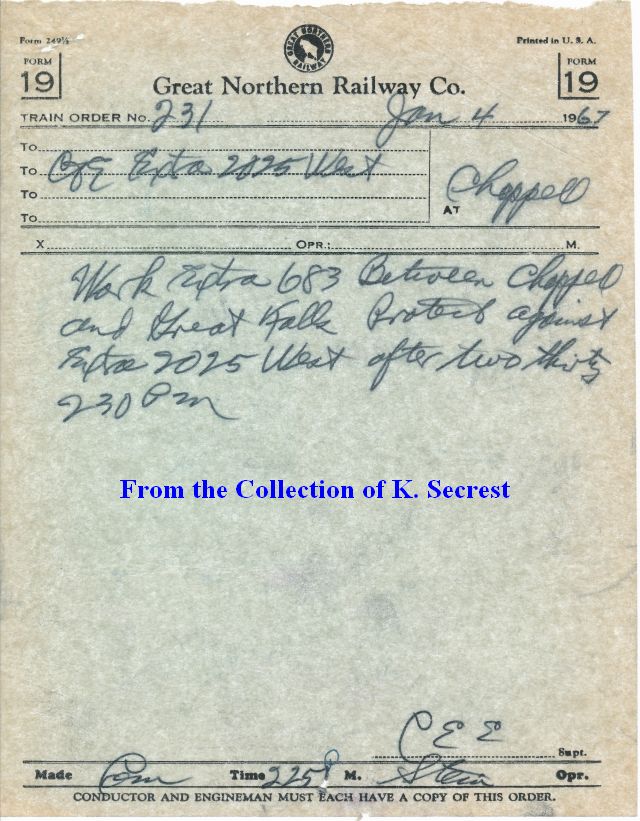 Form 249½
Printed in U. S. A.
GREAT NORTHERN RAILWAY
FORM 19
FORM 19
Great Northern Railway Co.
TRAIN ORDER No. 231 Jan 4 1967
To
To C&E Extra 2025 West
To
To
AT Chappell
X OPR.: M.
Work Extra 683 Between Chappell
and Great Falls Protect against
Extra 2025 West after two thirty
230 Pm
From the Collection of K. Secrest
C E E
Supt.
Made Com Time 225 P M. Stein Opr.
CONDUCTOR AND ENGINEMAN MUST EACH HAVE A COPY OF THIS ORDER.